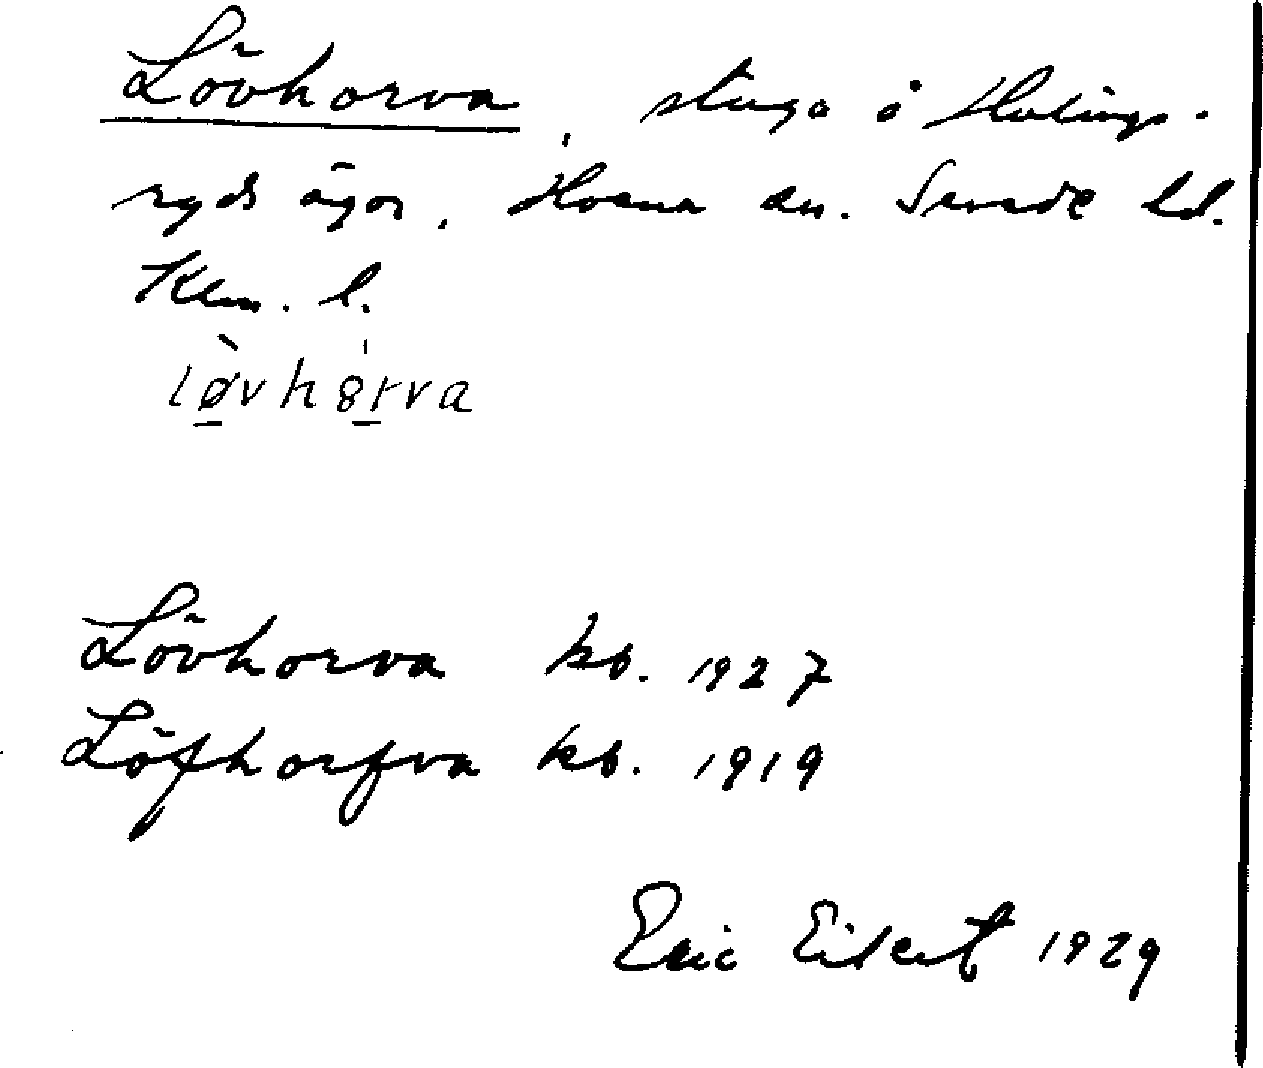 Lövhorva, stuga å Hulings-
ryds ägor, Hvena sn. Sevede hd.
Klm. l.
lø̱̀vhȯ̱rva
Lövhorva kb. 1927
Löfhorfva kb. 1919
Eric Eikert 1929